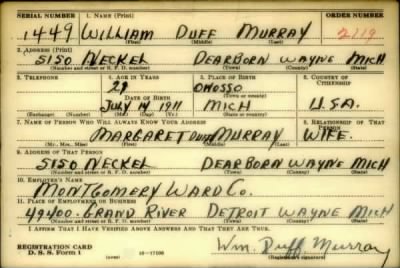 SERIAL NUMBER 1. NAME (Print) ORDER NUMBER
1449 WILLIAM DUFF MURRAY 2119
(First) (Middle) (Last)
2. ADDRESS (Print)
5150 NECKEL DEARBORN WAYNE MICH
(Number and street or R. F. D. number) (Town) (County) (State)
3. TELEPHONE 4. AGE IN YEARS 5. PLACE OF BIRTH 6. COUNTRY OF CITIZENSHIP
29 OWOSSO
DATE OF BIRTH (Town or county)
JULY 14 1911 MICH U.S.A.
(Exchange) (No.) (Mo.) (Day) (Yr.) (State or country)
7. NAME OF PERSON WHO WILL ALWAYS KNOW YOUR ADDRESS 8. RELATIONSHIP OF THAT PERSON
MARGARET MURRAY WIFE.
(Mr., Mrs., Miss) (First) (Middle) (Last)
9. ADDRESS OF THAT PERSON
5150 NECKEL DEARBORN WAYNE MICH
(Number and street or R. F. D. number) (Town) (County) (State)
10. EMPLOYER'S NAME
MONTGOMERY WARD CO.
11. PLACE OF EMPLOYMENT OR BUSINESS
49400 - GRAND RIVER DETROIT WAYNE MICH
(Number and street or R. F. D. number) (Town) (County) (State)
I AFFIRM THAT I HAVE VERIFIED ABOVE ANSWERS AND THAT THEY ARE TRUE.
REGISTRATION CARD Wm. Duff Murray
D. S. S. Form 1 (over) (Registrant's signature)